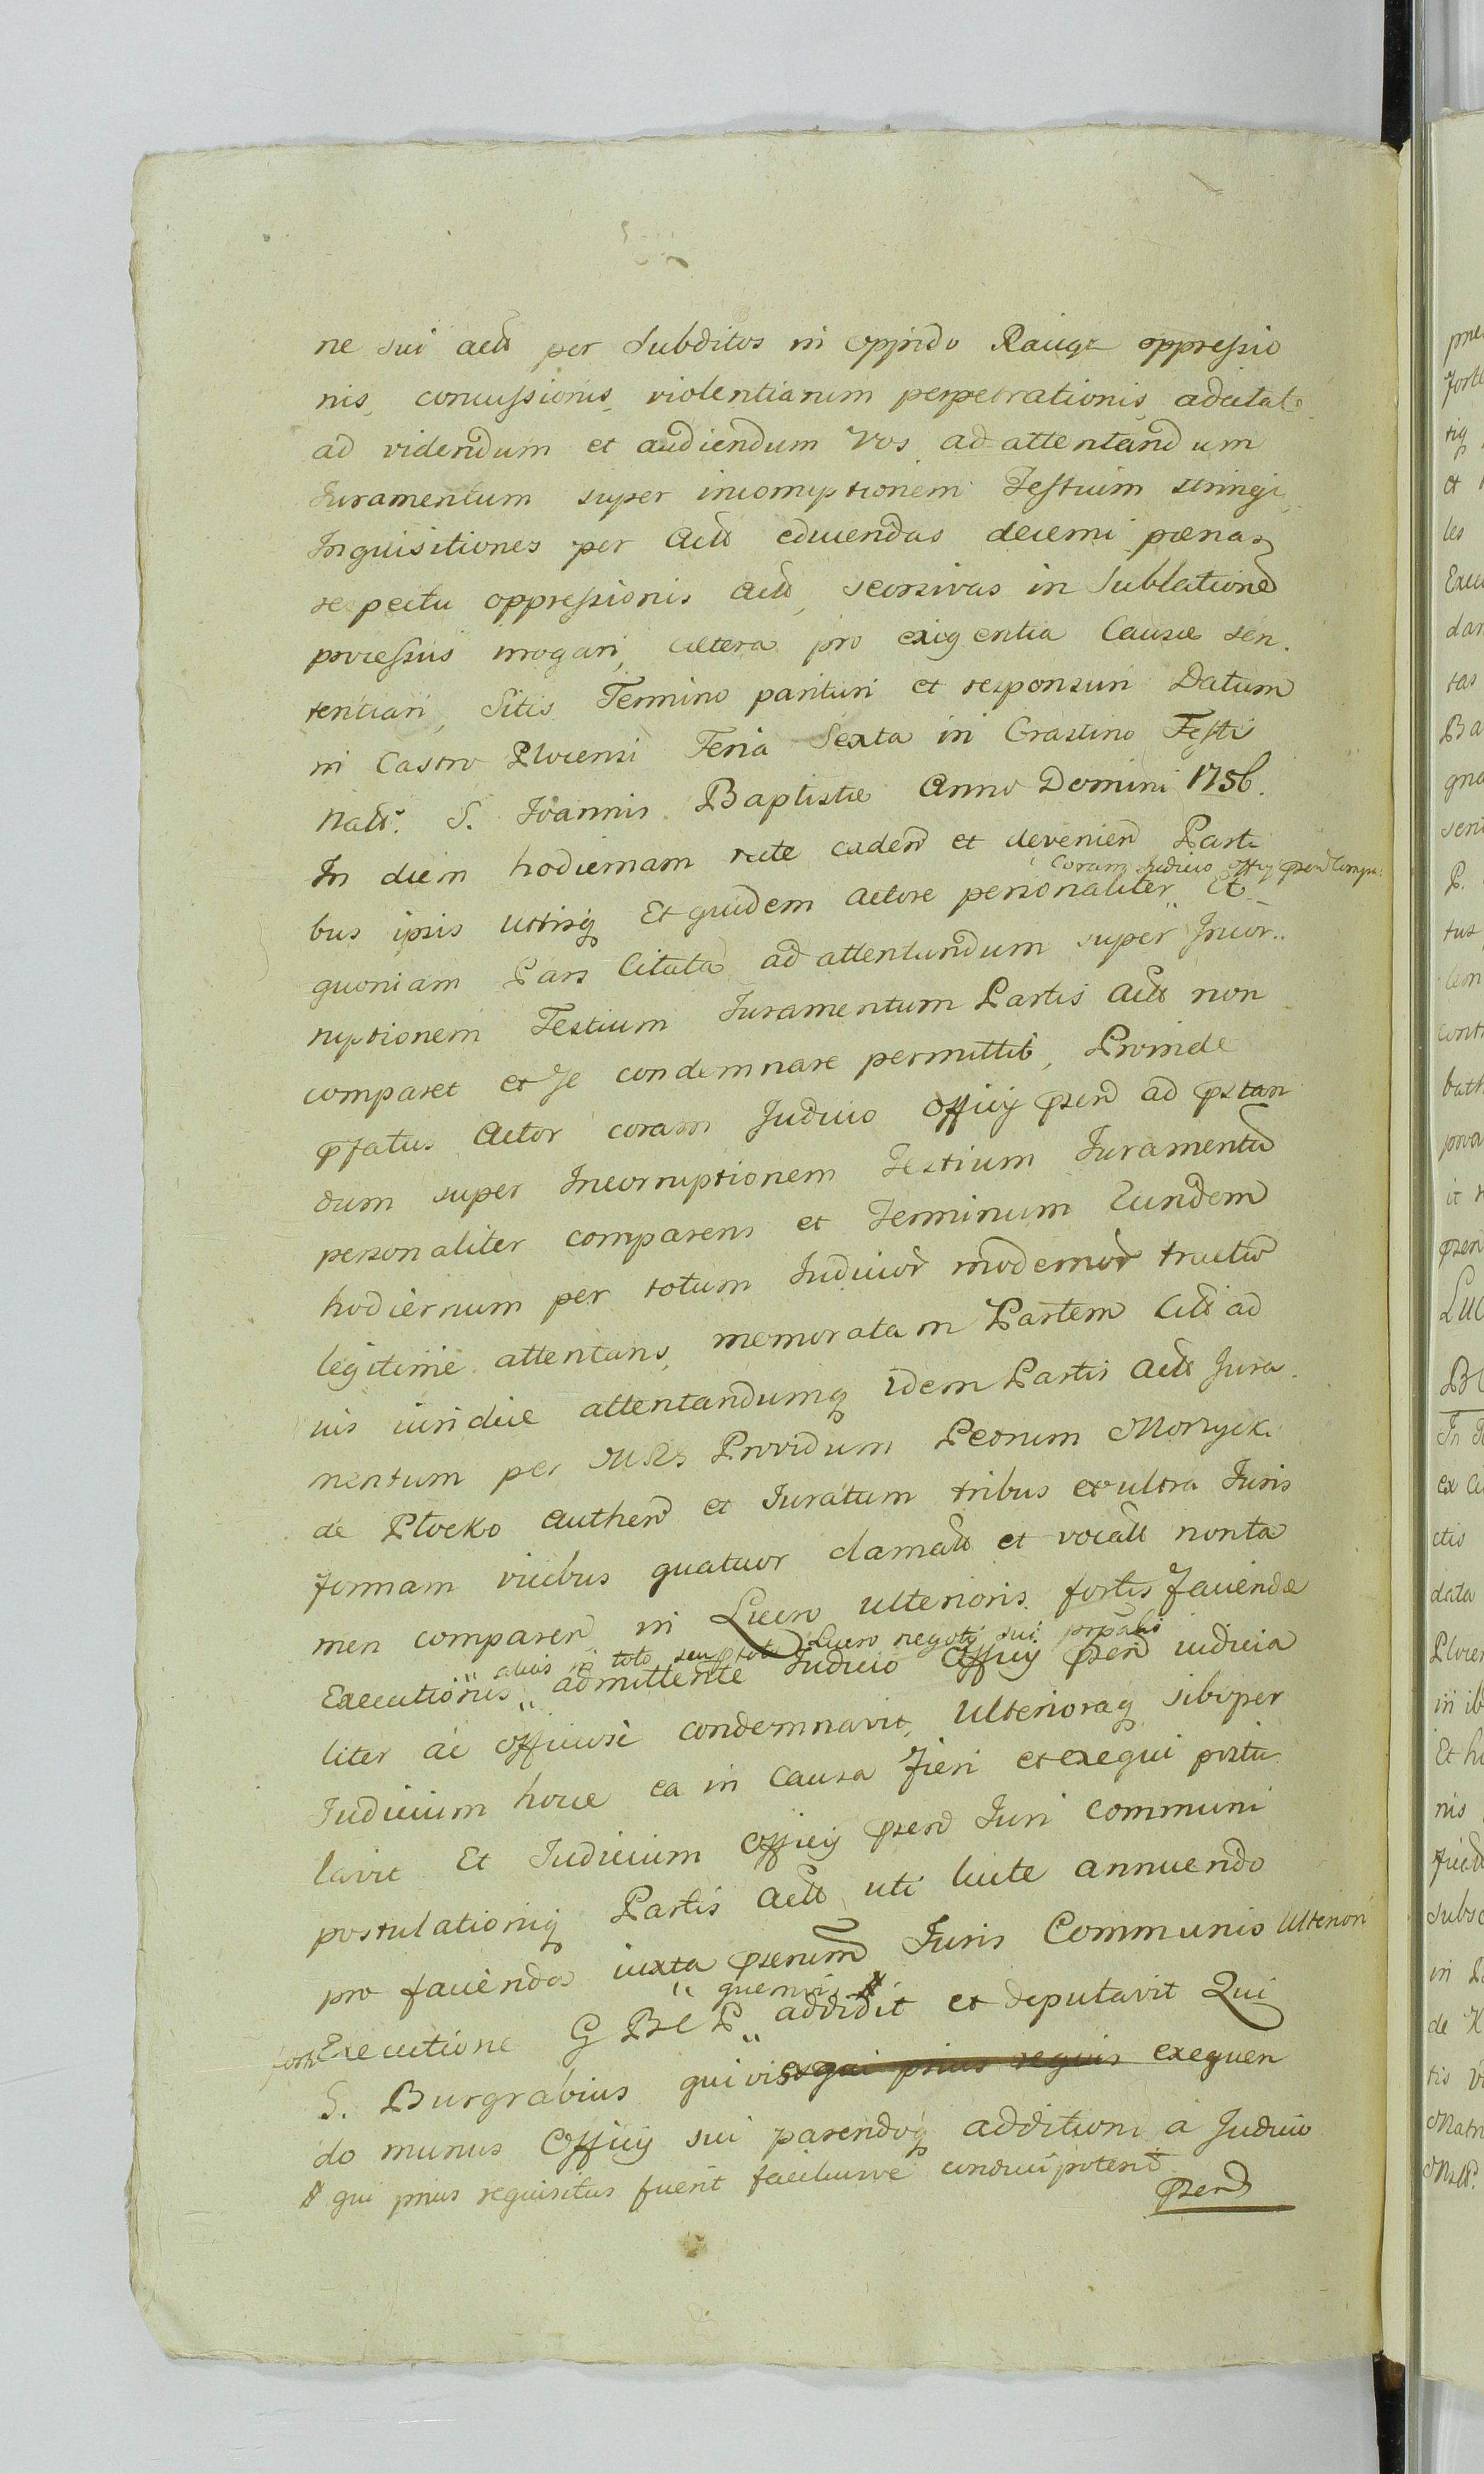 ne sui actt per Subditos in oppido Raiąż oppressio
nis, concussionis, violentiarum perpetrationis adcitato
ad videndum et audiendum Vos ad attentandum
Juramentum super incorruptionem Testium stringi,
Inquisitiones per Actt educendas decerni pœnas
respectu oppressionis Actt, seorsivas in Sublatione
processus irrogari, cætera pro exigentia Causæ sen
tentiari, Sitis Termino parituri et responsuri Datum
in Castro Plocensi Feria Sexta in Crastino Festi
Natt. S. Joannis Baptistæ Anno Domini 1756.
In diem hodiernam rite caden et devenien Parti
bus ipsis utrisq Et quidem Actore personaliter Coram Judicio Officij psen Compa: Et
quoniam Pars Citata ad attentandum super Incor..
ruptionem Testium Juramentum Partis Actt non
comparet et Se condemnare permittit, Proinde
pfatus Actor coram Judicio Officij psen ad pstan
dum super Incorruptionem Testium Juramentu
personaliter comparens et Terminum Eundem
hodiernum per totum Judicior modernor tractu
legitime attentans, memoratam Partem Citt ad
ius iuridice attentandumq idem Partis Actt Jura
mentum per Mtrl Providum Petrum Morzycki
de Plocko Authen et Juratum tribus et ultra Juris
formam vicibus quatuor clamatt et vocatt non ta
men comparen in Lucro ulterioris fortis faciendæ
Executionis alias in toto seu p toto Lucro negotij sui ppali admittente Judicio Officij psen iudicia
liter ac officiose condemnavit, Ulterioraq sibi per
Judicium hocce ea in Causa fieri et exequi postu
lavit Et Judicium Officij psen Juri communi
postulationiq Partis Actt uti licite annuendo
pro facienda iuxta pserum Juris Communis Ulteriori
forti Executione G B C P quemvis # addidit et deputavit Qui
G. Burgrabius quivis qui prius requis exequen
do munus Officij sui parendoq additioni a Judicio
# qui prius requisitus fuerit faciliusve conduci poterit
psen